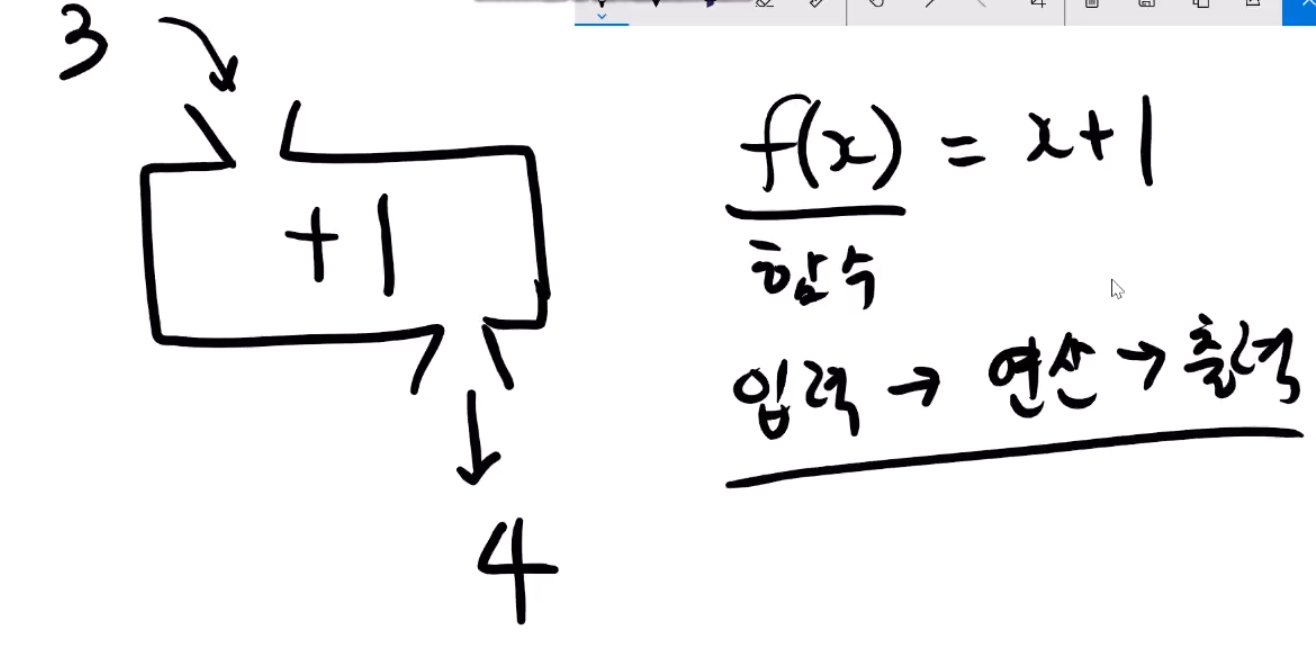 3
+1
4
f(x) = x+1
함수
입력 → 연산 → 출력